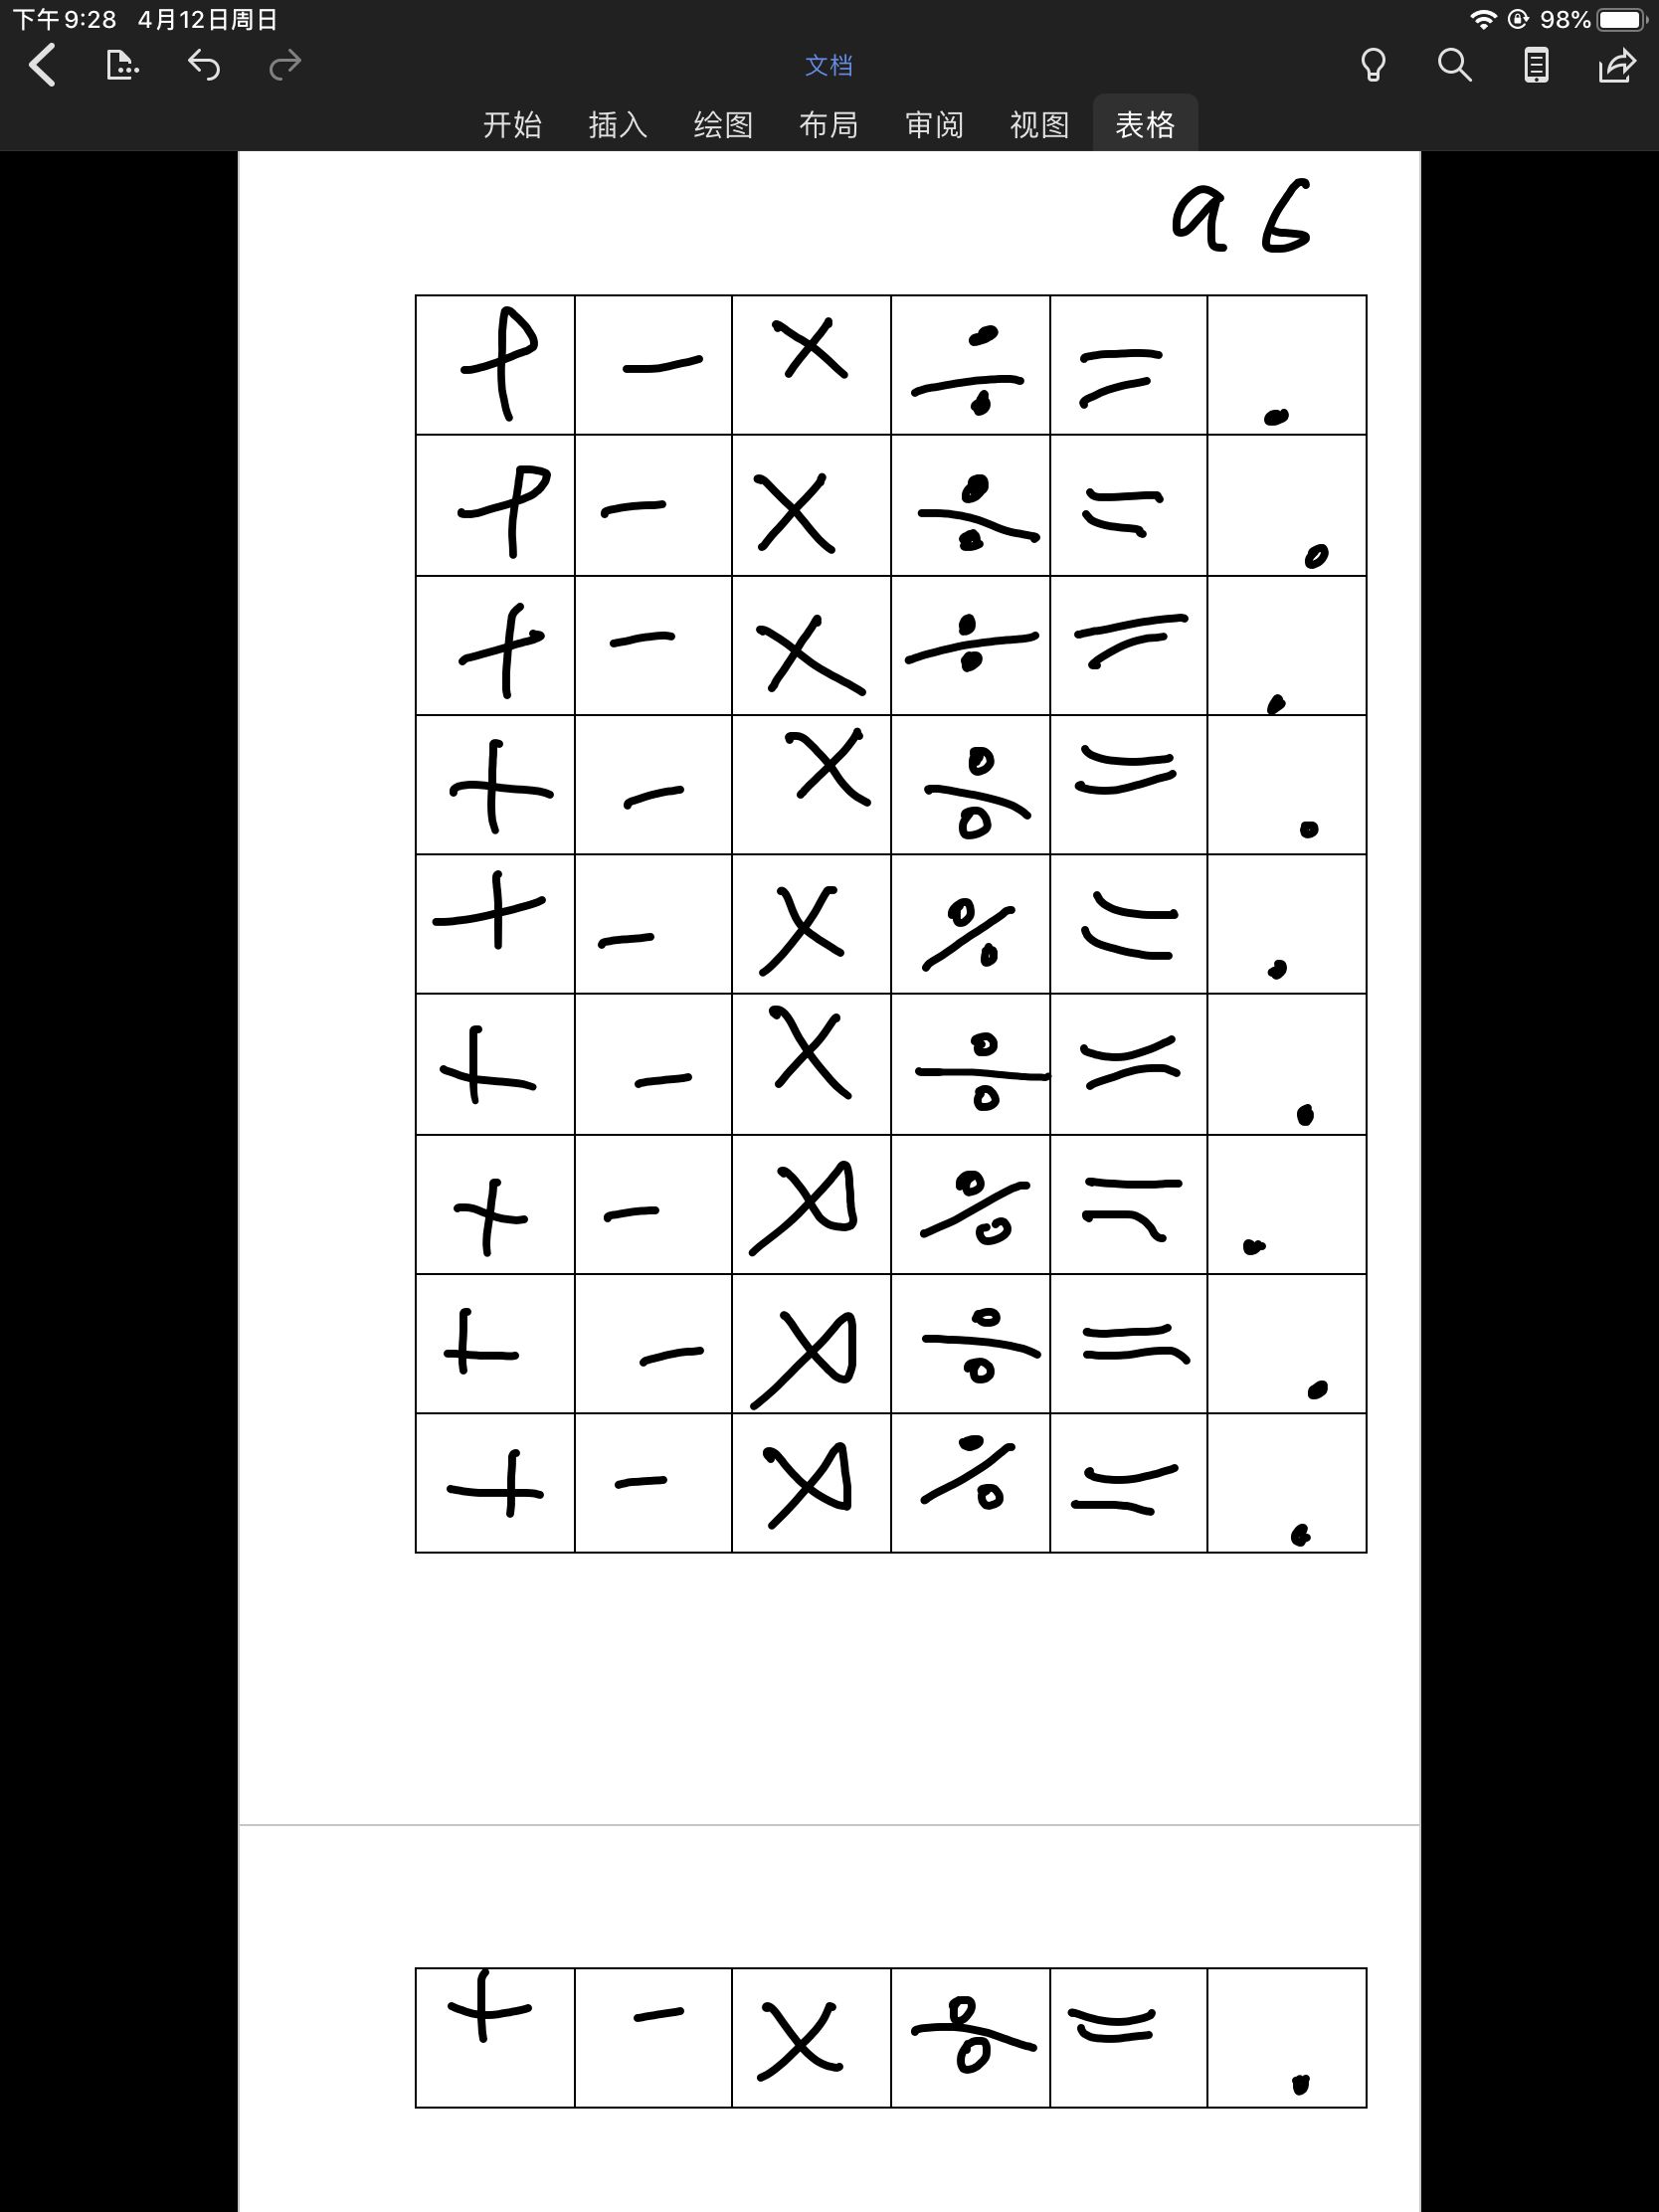 下午9:28 4月12日周日 98%
文档
开始 插入 绘图 布局 审阅 视图 表格
a6
+ - × ÷ = .
+ - × ÷ = .
+ - × ÷ = .
+ - × ÷ = .
+ - × ÷ = .
+ - × ÷ = .
+ - × ÷ = .
+ - × ÷ = .
+ - × ÷ = .
+ - × ÷ = .